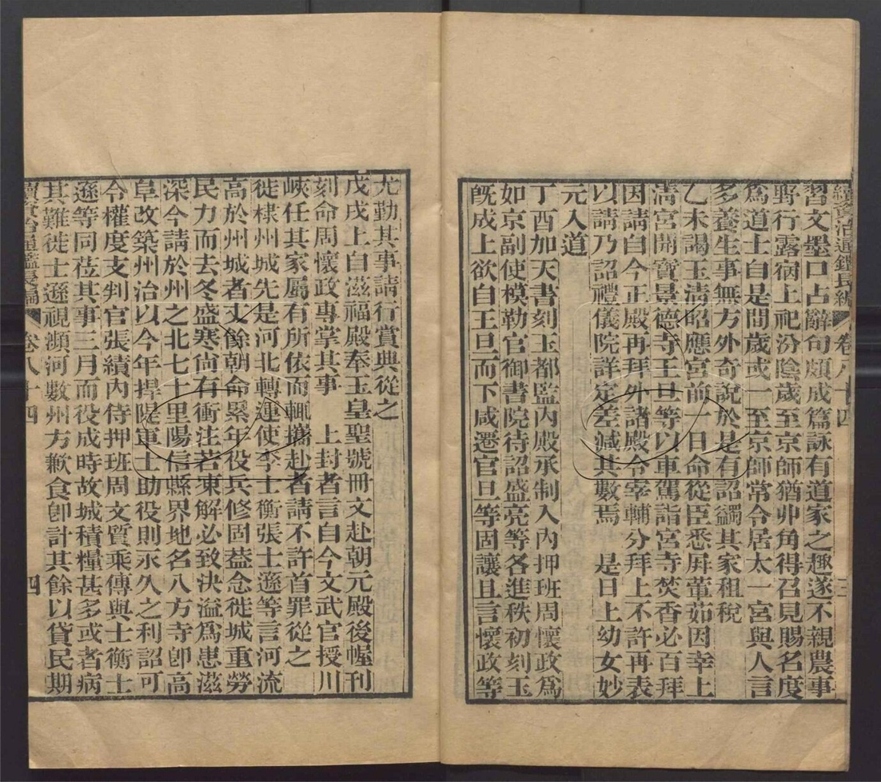 續資治通鑑長編 卷八十四 三
習文墨口占辭句頗成篇詠有道家之趣遂不親農事
野行露宿上祀汾陰歲至京師猶丱角得召見賜名度
爲道士自是間歲或一至京師常令居太一宮與人言
多養生事無方外奇說於是有詔蠲其家租稅
乙未謁玉清昭應宮前一日命從臣悉屛葷茹因幸上
清宮開寶景德寺王旦等以車駕詣宮寺焚香必百拜
因請自今正殿再拜外諸殿令宰輔分拜上不許再表
以請乃詔禮儀院詳定差減其數焉 是日上幼女妙
元入道
丁酉加天書刻玉都監內殿承制入內押班周懷政爲
如京副使模勒官御書院待詔盛亮等各進秩初刻玉
旣成上欲自王旦而下咸遷官旦等固讓且言懷政等
尤勤其事請行賞典從之
戊戌上自滋福殿奉玉皇聖號冊文赴朝元殿後幄刊
刻命周懷政專掌其事 上封者言自今文武官授川
峽任其家屬有所依而輒攜赴者請不許首罪從之
徙棣州城先是河北轉運使李士衡張士遜等言河流
高於州城者丈餘朝命累年役兵修固益念徙城重勞
民力而去冬盛寒尙有衝注若凍解必致決溢爲患滋
深今請於州之北七十里陽信縣界地名八方寺卽高
阜改築州治以今年捍隄軍士助役則永久之利詔可
令權度支判官張績內侍押班周文質乘傳與士衡士
遜等同莅其事三月而役成時故城積糧甚多或者病
其難徙士遜視瀕河數州方歉食卽計其餘以貸民期
續資治通鑑長編 卷八十四 四